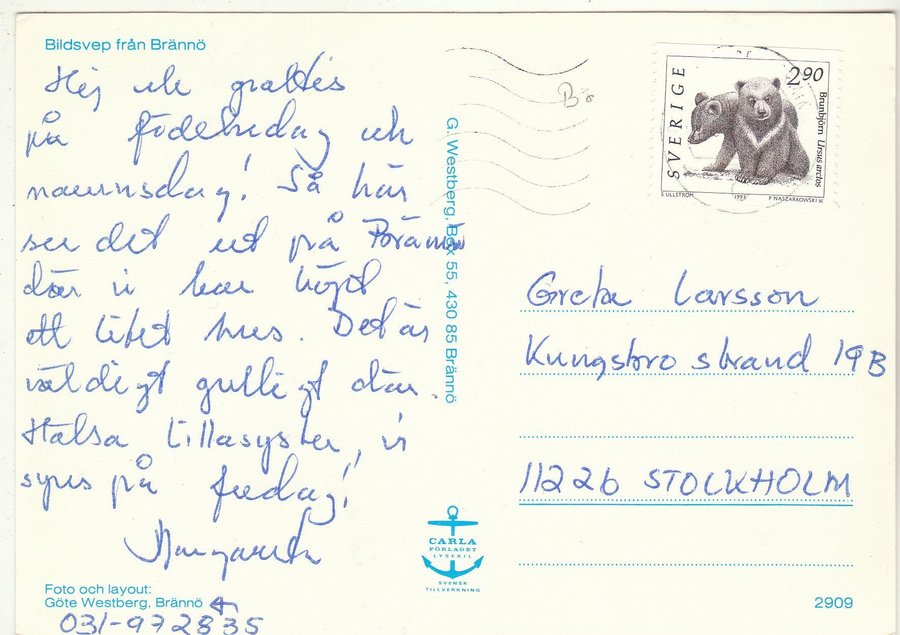 Bildsvep från Brännö
Hej och grattis
på födelsedag och
namnsdag! Så här
ser det ut på Brännö
där vi har köpt
ett litet hus. Det är
väldigt gulligt där.
Hälsa lillasyster, vi
syns på fredag!
Margareta
Foto och layout:
Göte Westberg, Brännö
031-972835
G. Westberg, Box 55, 430 85 Brännö
CARLA
FÖRLAGET
LYSEKIL
SVENSK
TILLVERKNING
Bö
SVERIGE
2.90
Brunbjörn Ursus arctos
S. ULLSTRÖM 1993 P. NASZARKOWSKI SC
Greta Larsson
Kungsbro strand 19B
11226 STOCKHOLM
2909